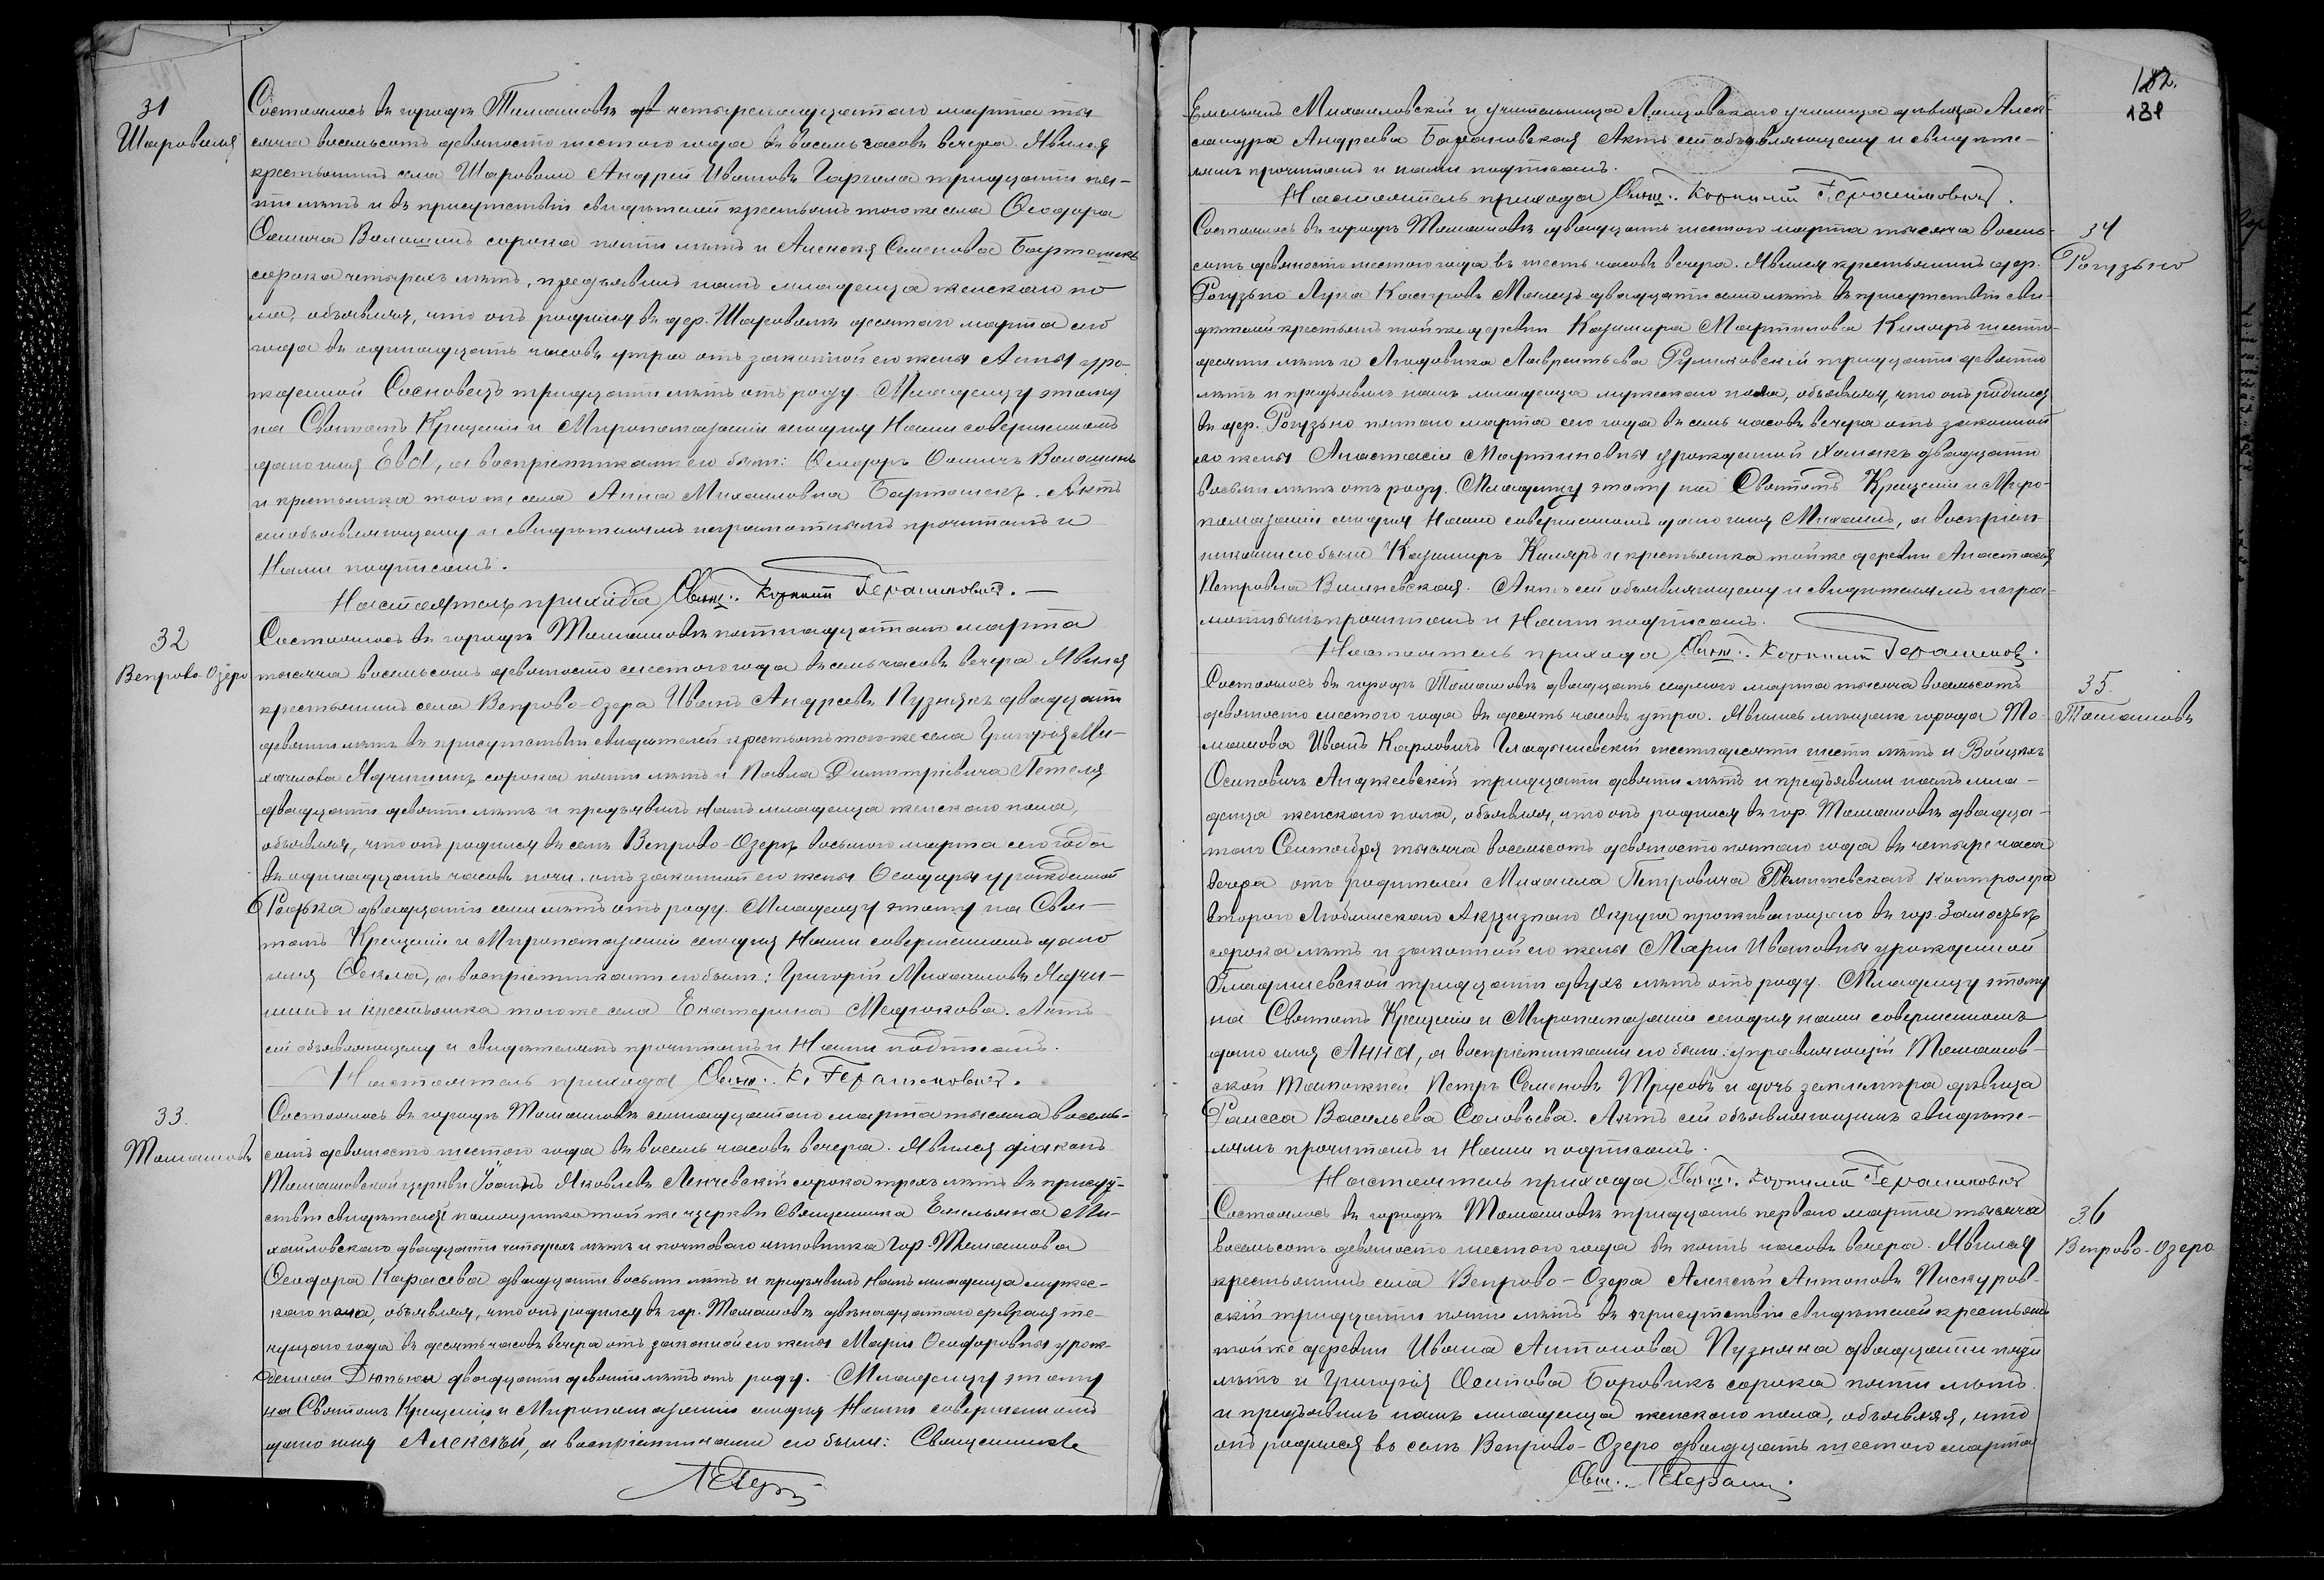 31
Шароволя
Состоялось въ городѣ Томашовѣ четырнадцатаго марта ты-
сяча восемьсотъ девяносто шестого года въ восемь часовъ вечера. Явился
крестьянинъ села Шароволи Андрей Ивановъ Гаргала тридцати пя-
ти лѣтъ и въ присутствіи свидѣтелей крестьянъ того же села Ѳеодора
Волошинъ сорока пяти лѣтъ и Алексѣя Семенова Бартошекъ
сорока четырехъ лѣтъ, предъявилъ намъ младенца женскаго по
ла, объявляя, что онъ родился въ дер. Шароволѣ десятаго марта сего
года въ одинадцать часовъ утра отъ законной его жены Анны уро-
жденной Сосновецъ тридцати лѣтъ отъ роду. Младенцу этому
на Святомъ Крещеніи и Миропомазаніи сегодня Нами совершенномъ
дано имя Ева, а воспріемниками его были: Ѳеодоръ Волошинъ
и крестьянка того же села Анна Михайловна Бартошекъ. Актъ
сей объявляющему и свидѣтелямъ неграмотнымъ прочитанъ и
Нами подписанъ.
Настоятель прихода Свящ. Корнилій Герасимовичъ.
32
Вепрово-Озеро
Состоялось въ городѣ Томашовѣ пятнадцатаго марта
тысяча восемьсотъ девяносто шестого года въ семь часовъ вечера. Явился
крестьянинъ села Вепрово-Озера Иванъ Андреевъ Пузнякъ двадцати
девяти лѣтъ въ присутствіи свидѣтелей крестьянъ того-же села Григорія Ми-
хаилова сорока пяти лѣтъ и Павла Димитріевича Петеля
двадцати девяти лѣтъ и предъявилъ Намъ младенца женскаго пола,
объявляя, что онъ родился въ селѣ Вепрово-Озерѣ восьмого марта сего года
въ одинадцать часовъ ночи отъ законной его жены Ѳеодоры урожденной
двадцати семи лѣтъ отъ роду. Младенцу этому на Свя-
томъ Крещеніи и Миропомазаніи сегодня Нами совершенномъ дано
имя Ѳекла, а воспріемниками его были: Григорій Михаиловъ
и крестьянка того же села Екатерина Федюкова. Актъ
сей объявляющему и свидѣтелямъ прочитанъ и Нами подписанъ.
Настоятель прихода Свящ. К. Герасимовичъ.
33.
Томашовъ
Состоялось въ городѣ Томашовѣ семнадцатаго марта тысяча восемь-
сотъ девяносто шестого года въ восемь часовъ вечера. Явился діаконъ
Томашовской церкви Іоаннъ Яковлевъ Ленчевскій сорока трехъ лѣтъ въ присут-
ствіи свидѣтелей помощника той же церкви Священника Емельяна Ми-
хайловскаго двадцати четырехъ лѣтъ и почтоваго чиновника гор. Томашова
Ѳеодора Карасева двадцати восьми лѣтъ и предъявилъ Намъ младенца мужес-
каго пола, объявляя, что онъ родился въ гор. Томашовѣ двѣнадцатаго февраля те-
кущаго года въ десять часовъ вечера отъ законной его жены Маріи Ѳеодоровны урож-
денной двадцати девяти лѣтъ отъ роду. Младенцу этому
на Святомъ Крещеніи и Миропомазаніи сегодня Нами совершенномъ
дано имя Алексѣй, а воспріемниками его были: Священникъ
182.
181
Емельянъ Михаиловскій и учительница училища дѣвица Алек-
сандра Андреева Барановская. Актъ сей объявляющему и свидѣте-
лямъ прочитанъ и нами подписанъ.
Настоятель прихода Свящ. Корнилій Герасимовичъ.
34
Рогузьно
Состоялось въ городѣ Томашовѣ двадцать шестого марта тысяча восемь-
сотъ девяносто шестого года въ шесть часовъ вечера. Явился крестьянинъ дер.
Рогузьно Лука двадцати семи лѣтъ въ присутствіи сви-
дѣтелей крестьянъ той же деревни Казимира Мартинова Киляръ шести-
десяти лѣтъ и Людовика Лаврентьева тридцати девяти
лѣтъ и предъявилъ намъ младенца мужескаго пола, объявляя, что онъ родился
въ дер. Рогузьно пятаго марта сего года въ семь часовъ вечера отъ законной
его жены Анастасіи Мартиновны урожденной двадцати
восьми лѣтъ отъ роду. Младенцу этому на Святомъ Крещеніи и Миро-
помазаніи сегодня Нами совершенномъ дано имя Михаилъ, а воспріем-
никами его были Казимиръ Киляръ и крестьянка той же деревни Анастасія
Петровна Вишневская. Актъ сей объявляющему и свидѣтелямъ негра-
мотнымъ прочитанъ и Нами подписанъ.
Настоятель прихода Свящ. Корнилій Герасимовъ.
35.
Томашовъ
Состоялось въ городѣ Томашовѣ двадцать седьмого марта тысяча восемьсотъ
девяносто шестого года въ десять часовъ утра. Явились мѣщане города То-
машова Иванъ Карловичъ Гладишевскій шестидесяти шести лѣтъ и Войцехъ
Осиповичъ Анджеевскій тридцати девяти лѣтъ и предъявили намъ мла-
денца женскаго пола, объявляя, что онъ родился въ гор. Томашовѣ двадца-
таго Сентября тысяча восемьсотъ девяносто пятаго года въ четыре часа
вечера отъ родителей Михаила Петровича контролера
второго Люблинскаго Акцизнаго Округа проживающаго въ гор. Замостьѣ
сорока лѣтъ и законной его жены Маріи Ивановны урожденной
Гладишевской тридцати двухъ лѣтъ отъ роду. Младенцу этому
на Святомъ Крещеніи и Миропомазаніи сегодня нами совершенномъ
дано имя Анна, а воспріемниками его были: управляющій Томашов-
ской таможней Петръ Семеновъ Трусовъ и дочь землемѣра дѣвица
Раисса Васильева Соловьева. Актъ сей объявляющимъ свидѣте-
лямъ прочитанъ и Нами подписанъ.
Настоятель прихода Свящ. Корнилій Герасимовичъ
36
Вепрово-Озеро
Состоялось въ городѣ Томашовѣ тридцать перваго марта тысяча
восемьсотъ девяносто шестого года въ пять часовъ вечера. Явился
крестьянинъ села Вепрово-Озера Алексѣй Антоновъ Пискуров-
скій тридцати пяти лѣтъ въ присутствіи свидѣтелей крестьянъ
той же деревни Ивана Антонова Пузняка двадцати пяти
лѣтъ и Григорія Осипова Боровикъ сорока пяти лѣтъ
и предъявилъ намъ младенца женскаго пола, объявляя, что
онъ родился въ селѣ Вепрово-Озеро двадцать шестого марта
Свящ.